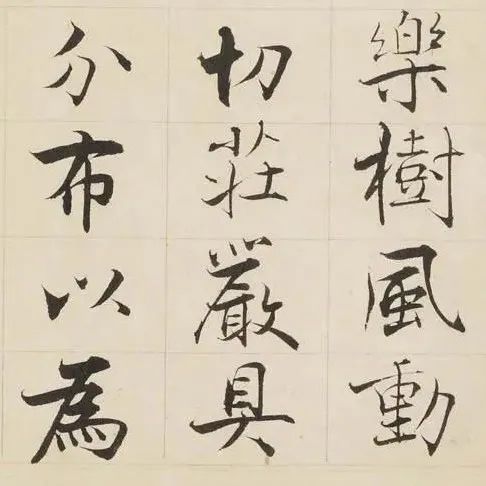 樂樹風動
切莊嚴具
分布以為